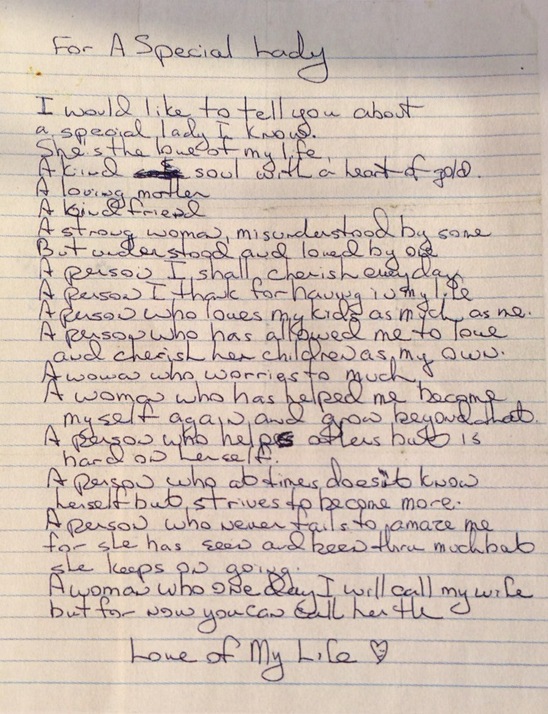 For A Special Lady
I would like to tell you about
a special lady I know.
She's the love of my life
A kind soul with a heart of gold.
A loving mother
A kind friend
A strong woman, misunderstood by some
But understood and loved by one
A person I shall cherish everyday
A person I thank for having in my life
A person who loves my kids as much as me.
A person who has allowed me to love
and cherish her children as my own.
A woman who worries to much
A woman who has helped me become
myself again and grow beyond that.
A person who helps others but is
hard on herself.
A person who at times doesn't know
herself but strives to become more.
A person who never fails to amaze me
for she has seen and been thru much but
she keeps on going.
A woman who one day I will call my wife
but for now you can call her the
Love of My Life ♡